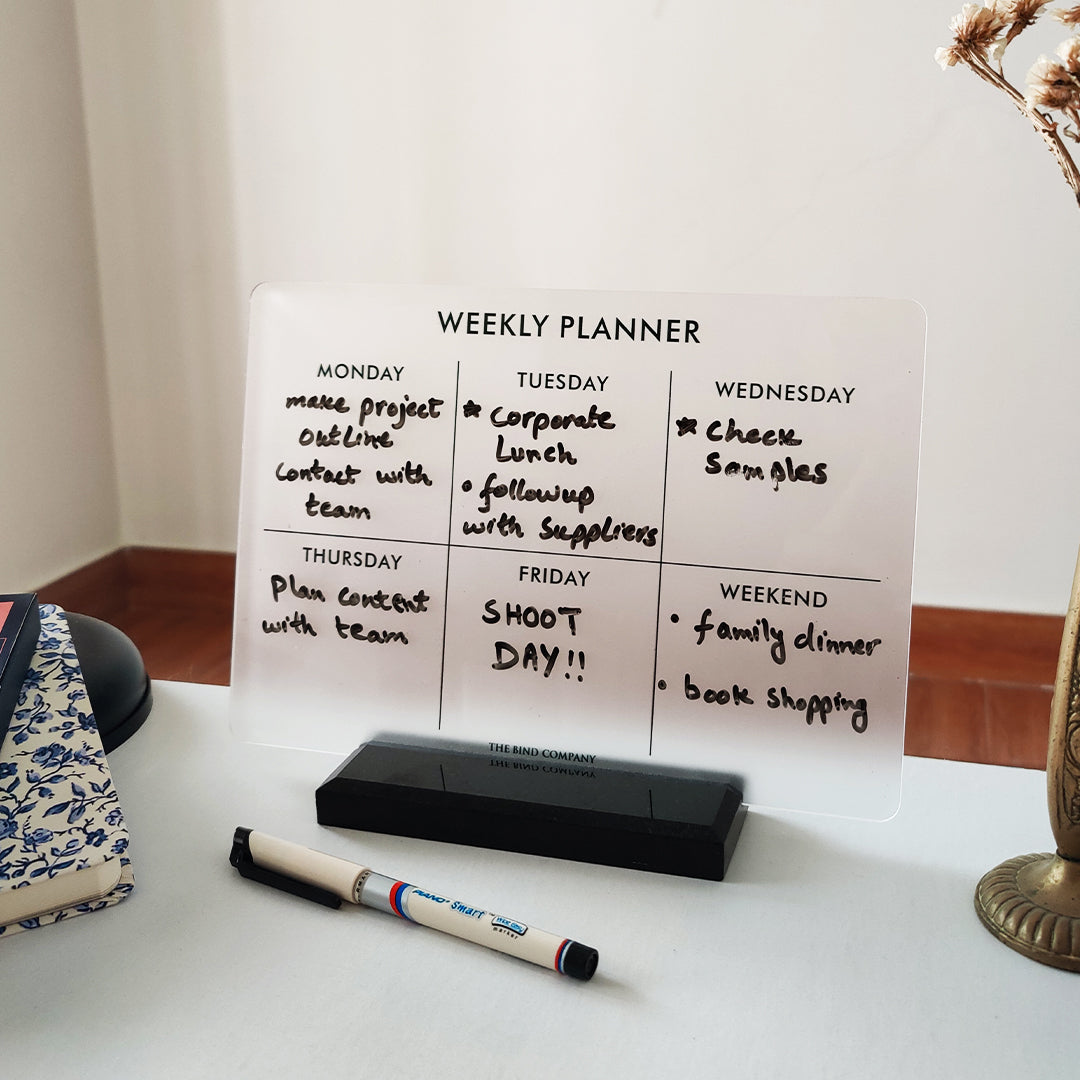 WEEKLY PLANNER
MONDAY
make project
outline
Contact with
team
TUESDAY
* Corporate
Lunch
• followup
with Suppliers
WEDNESDAY
* Check
Samples
THURSDAY
Plan content
with team
FRIDAY
SHOOT
DAY!!
WEEKEND
• family dinner
• book shopping
THE BIND COMPANY
PIANO Smart
marker